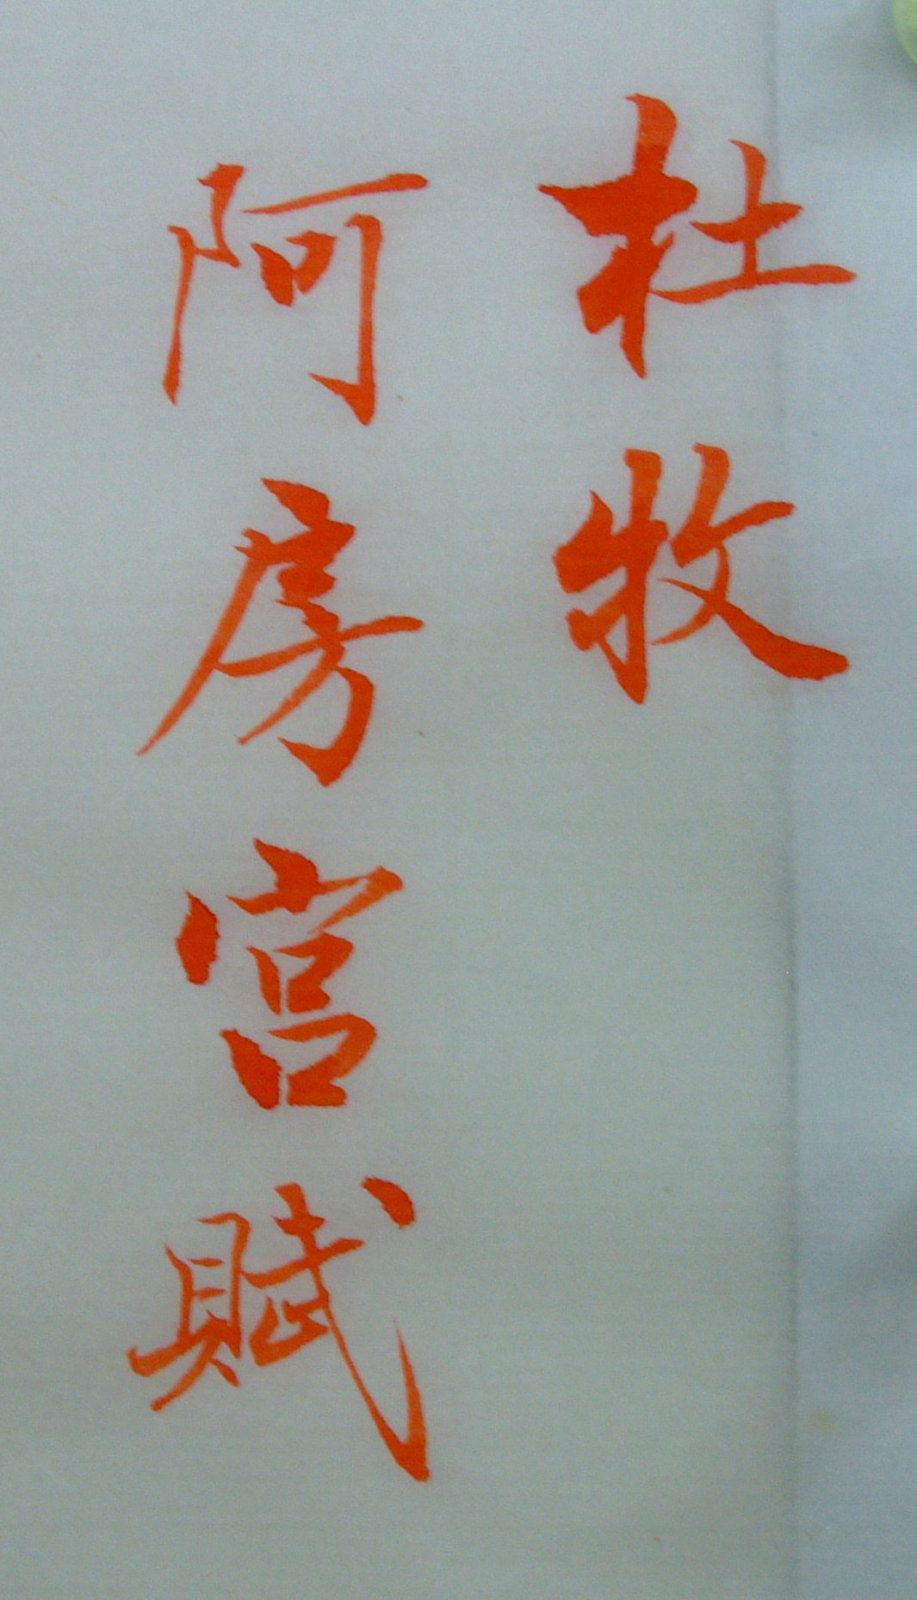 杜牧
阿房宮賦